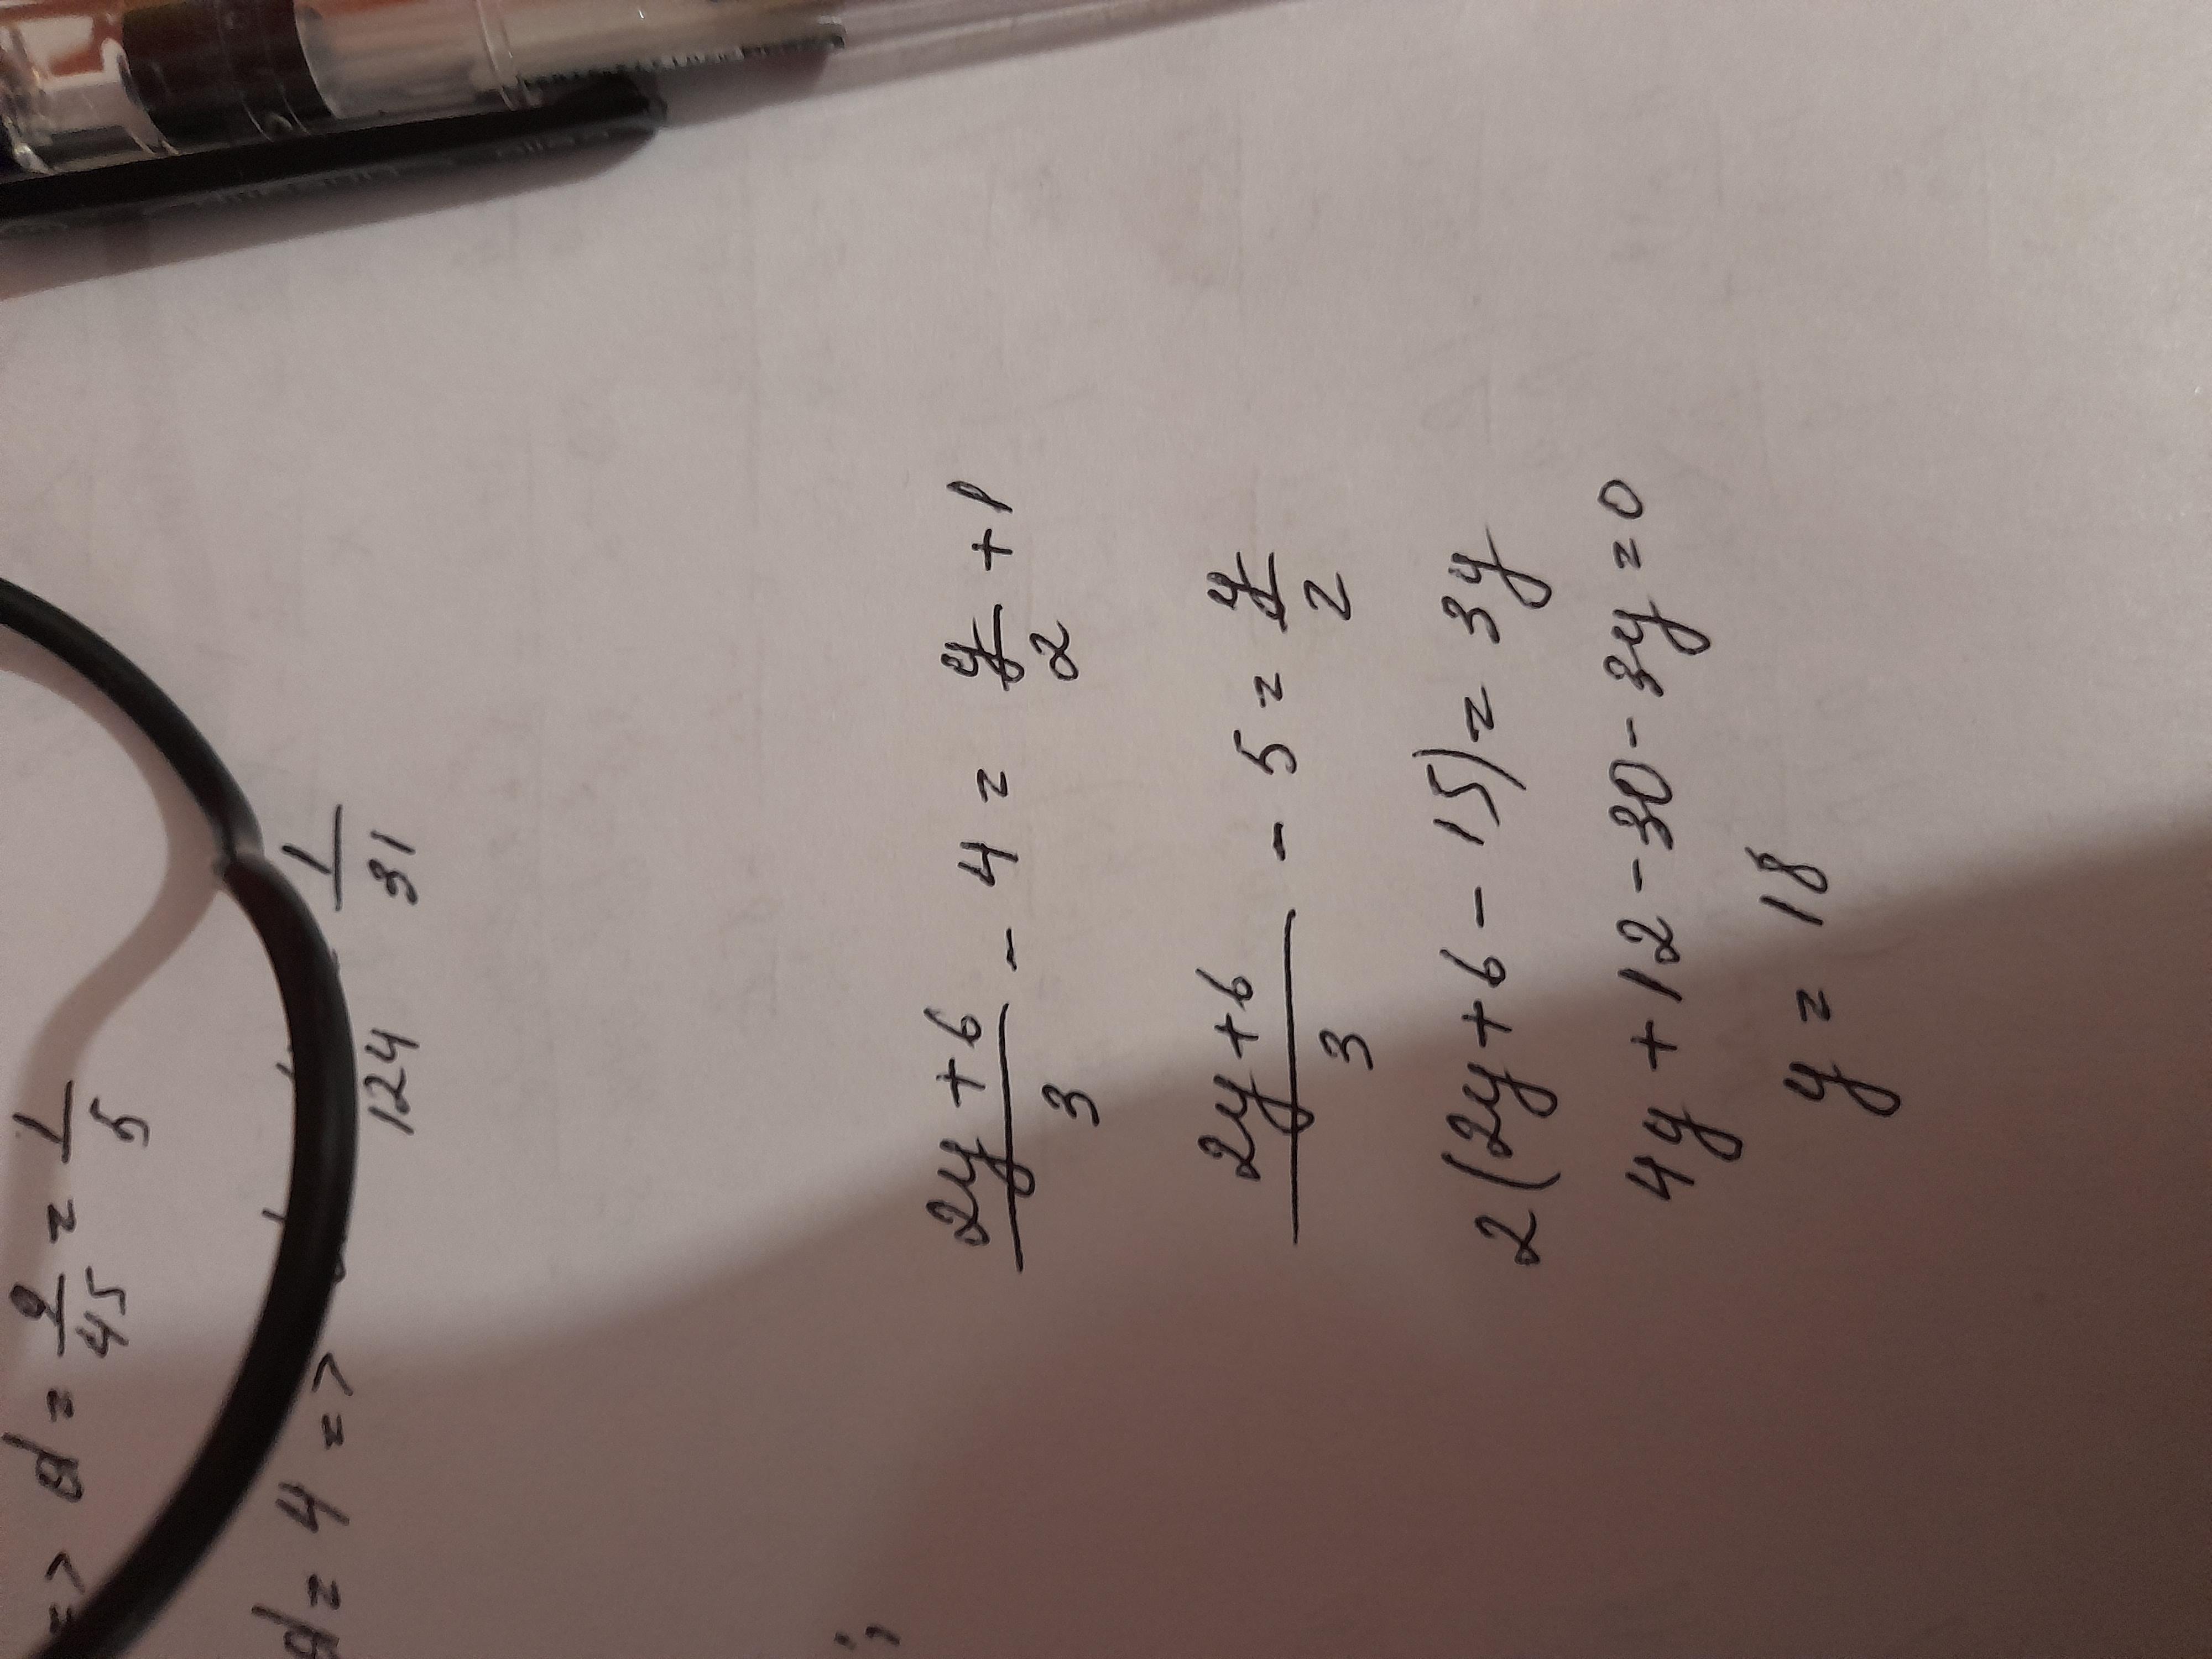 => d = 9/45 = 1/5
d = 4 => 124 1/31
(2y+6)/3 - 4 = y/2 + 1
(2y+6)/3 - 5 = y/2
2(2y+6-15) = 3y
4y+12-30-3y=0
y = 18